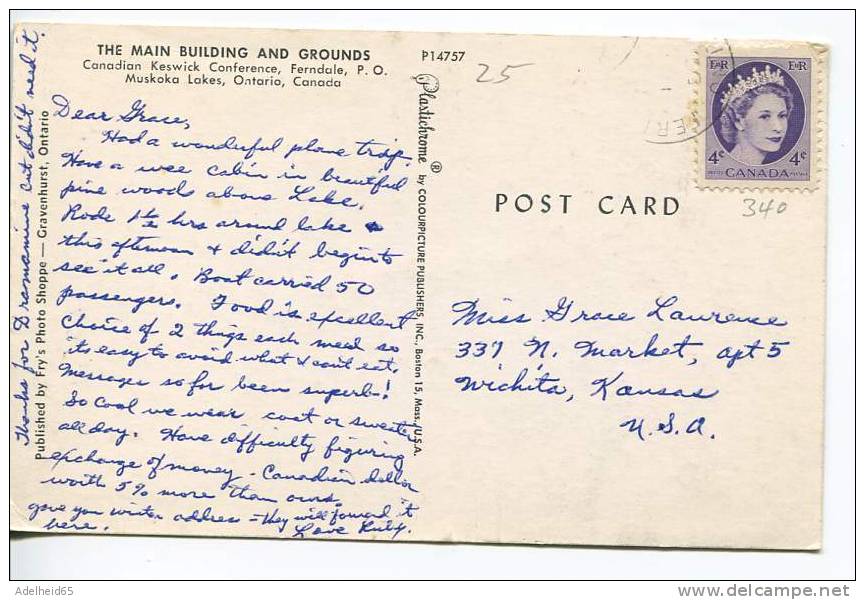 THE MAIN BUILDING AND GROUNDS
Canadian Keswick Conference, Ferndale, P. O.
Muskoka Lakes, Ontario, Canada
P14757
25
Dear Grace,
Had a wonderful plane trip.
Have a wee cabin in beautiful
pine woods above Lake.
Rode 1½ hrs around lake
this afternoon & didn't begin to
see it all. Boat carried 50
passengers. Food is excellent
Choice of 2 things each meal so
its easy to avoid what I can't eat.
Messages so far been superb-!
So cool we wear coat or sweater
all day. Have difficulty figuring
exchange of money - Canadian dollar
worth 5% more than ours.
gave you winter address - they will forward it
here. Love Ruby.
Thanks for Dramamine but didn't need it.
Published by Fry's Photo Shoppe — Gravenhurst, Ontario
Plastichrome ® by COLOURPICTURE PUBLISHERS, INC., Boston 15, Mass. U.S.A.
EIIR EIIR
4¢ 4¢
POSTES CANADA POSTAGE
340
POST CARD
Miss Grace Lawrence
337 N. Market, apt 5
Wichita, Kansas
U.S.A.
Adelheid65
www.delcampe.net